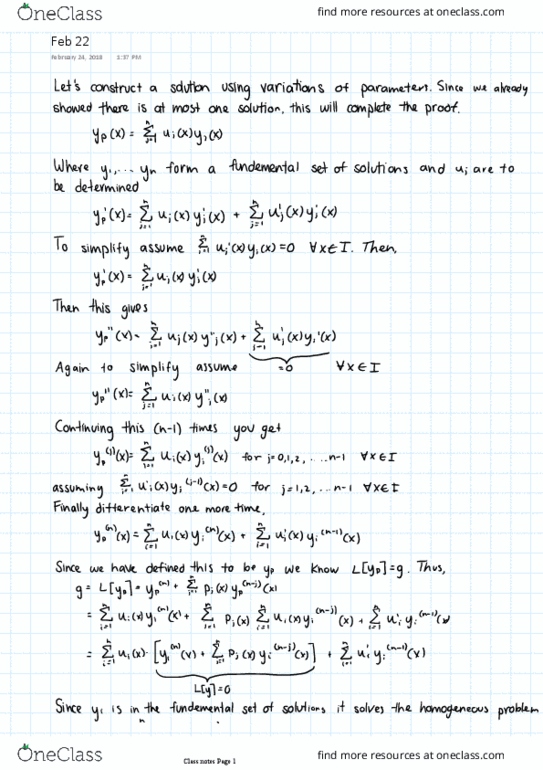 OneClass
find more resources at oneclass.com
Feb 22
February 24, 2018 1:37 PM
Let's construct a solution using variations of parameters. Since we already
showed there is at most one solution, this will complete the proof.
yₚ(x) = Σⁿᵢ₌₁ uᵢ(x)yᵢ(x)
Where y₁,... yₙ form a fundemental set of solutions and uᵢ are to
be determined
yₚ'(x) = Σⁿᵢ₌₁ uᵢ(x)yᵢ'(x) + Σⁿⱼ₌₁ uⱼ'(x)yᵢ(x)
To simplify assume Σⁿᵢ₌₁ uᵢ'(x)yᵢ(x)=0 ∀x∈I. Then,
yₚ'(x) = Σⁿᵢ₌₁ uᵢ(x)yᵢ'(x)
Then this gives
yₚ''(x) = Σⁿⱼ₌₁ uⱼ(x)y''ⱼ(x) + Σⁿⱼ₌₁ uⱼ'(x)yⱼ'(x)
Again to simplify assume =0 ∀x∈I
yₚ''(x) = Σⁿⱼ₌₁ uᵢ(x)y''ᵢ(x)
Continuing this (n-1) times you get
yₚ⁽ʲ⁾(x) = Σⁿᵢ₌₁ uᵢ(x)yᵢ⁽ʲ⁾(x) for j=0,1,2, ....n-1 ∀x∈I
assuming Σⁿᵢ₌₁ uᵢ'(x)yᵢ⁽ʲ⁻¹⁾(x)=0 for j=1,2,...n-1 ∀x∈I
Finally differentiate one more time,
yₚ⁽ⁿ⁾(x) = Σⁿᵢ₌₁ uᵢ(x)yᵢ⁽ⁿ⁾(x) + Σⁿᵢ₌₁ uᵢ'(x)yᵢ⁽ⁿ⁻¹⁾(x)
Since we have defined this to be yₚ we know L[yₚ]=g. Thus,
g = L[yₚ] = yₚ⁽ⁿ⁾ + Σⁿⱼ₌₁ pⱼ(x)yₚ⁽ⁿ⁻ʲ⁾(x)
= Σⁿᵢ₌₁ uᵢ(x)yᵢ⁽ⁿ⁾(x) + Σⁿⱼ₌₁ pⱼ(x) Σⁿᵢ₌₁ uᵢ(x)yᵢ⁽ⁿ⁻ʲ⁾(x) + Σⁿᵢ₌₁ uᵢ' yᵢ⁽ⁿ⁻¹⁾(x)
= Σⁿᵢ₌₁ uᵢ(x)·[yᵢ⁽ⁿ⁾(x) + Σⁿⱼ₌₁ pⱼ(x)yᵢ⁽ⁿ⁻ʲ⁾(x)] + Σⁿᵢ₌₁ uᵢ' yᵢ⁽ⁿ⁻¹⁾(x)
L[y]=0
Since yᵢ is in the fundemental set of solutions it solves the homogeneous problem
OneClass
Class notes Page 1
find more resources at oneclass.com